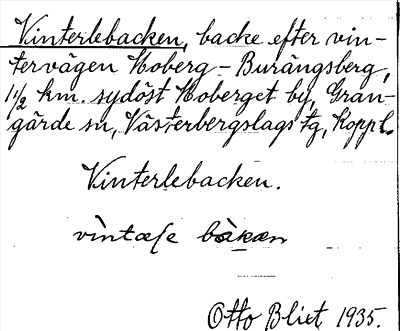 Vinterlebacken, backe efter vin-
tervägen Hoberg - Burängsberg,
1 1/2 km. sydöst Hoberget by, Gran-
gärde sn, Västerbergslags tg, Koppl.
Vinterlebacken.
Otto Blixt 1935.